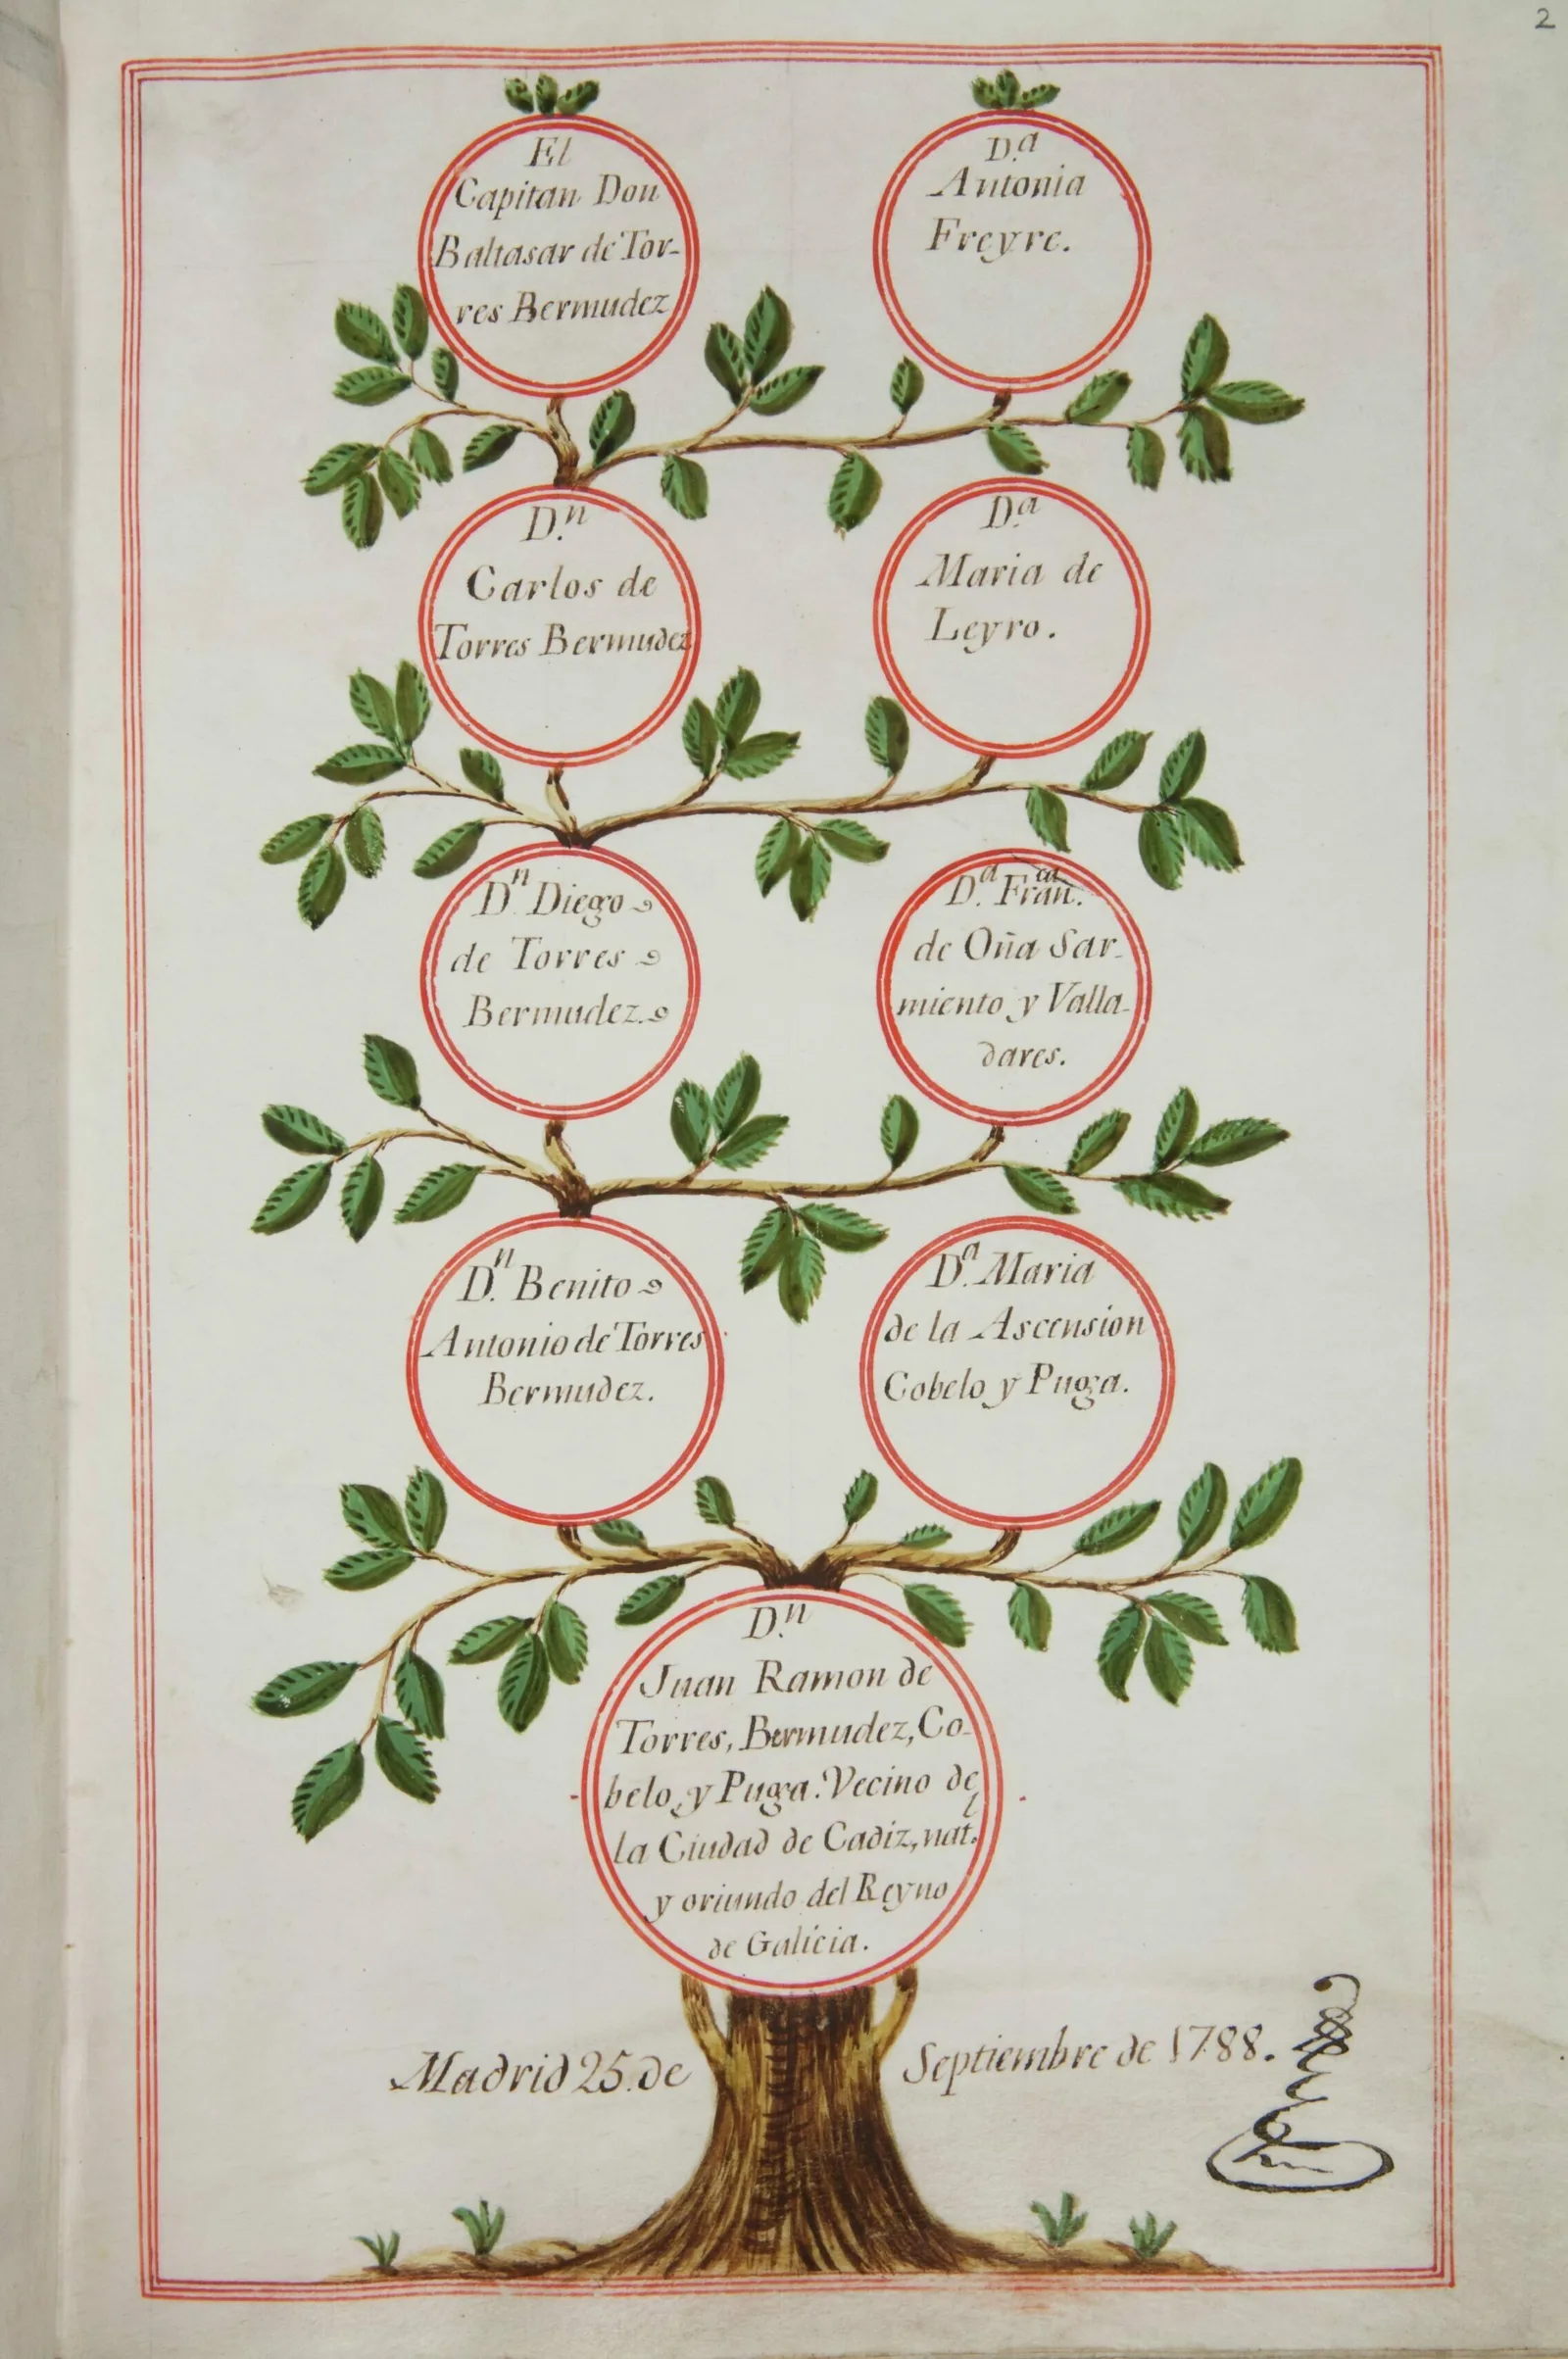 2
El
Capitan Don
Baltasar de Tor-
res Bermudez
D.ª
Antonia
Freyre.
D.ⁿ
Carlos de
Torres Bermudez
D.ª
Maria de
Leyro.
D.ⁿ Diego
de Torres
Bermudez.
D.ª Fran.ᶜᵃ
de Oña Sar-
miento y Valla-
dares.
D.ⁿ Benito
Antonio de Torres
Bermudez.
D.ª Maria
de la Ascension
Cobelo y Puga.
D.ⁿ
Juan Ramon de
Torres, Bermudez, Co-
belo, y Puga. Vecino de
la Ciudad de Cadiz, nat.ˡ
y oriundo del Reyno
de Galicia.
Madrid 25. de Septiembre de 1788.